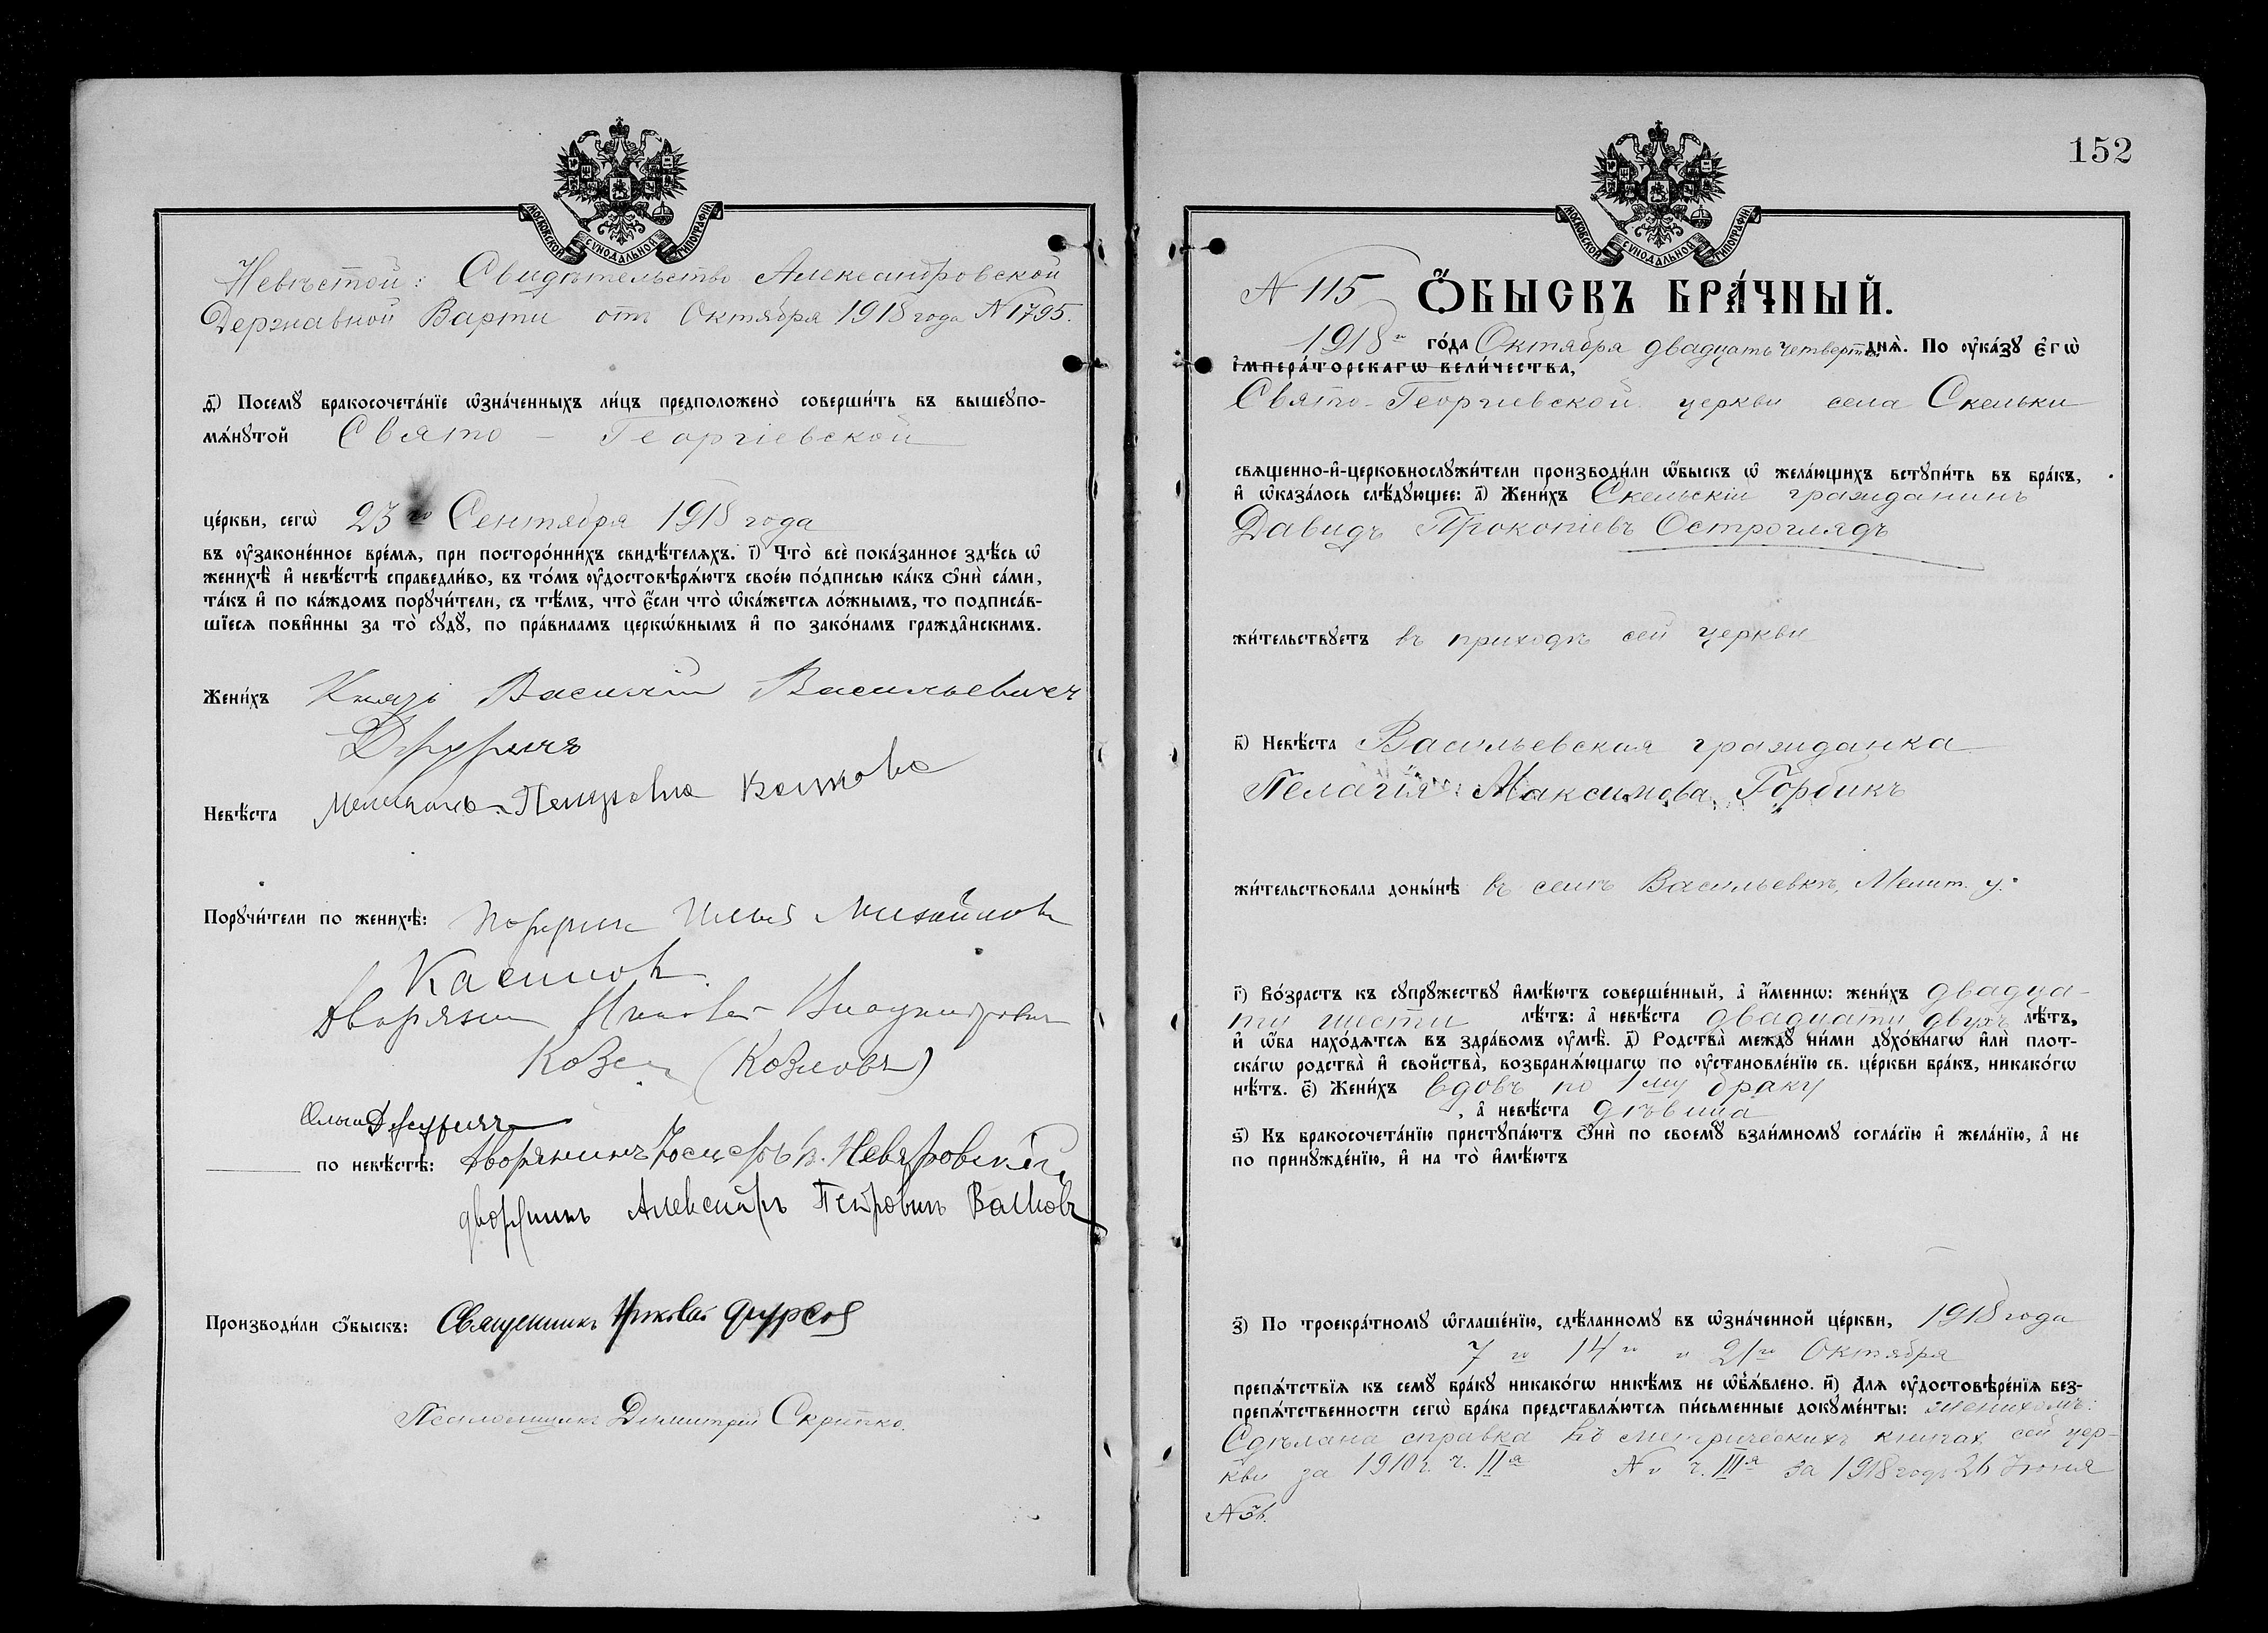 МОСКОВСКОЙ СѴНОДАЛЬНОЙ ТИПОГРАФІИ
Невѣстой: Свидѣтельство Александровской
Державной Варти отъ Октября 1918 года № 1795.
д҃) Посемꙋ бракосочета́нїе ѡ҆зна́ченныхъ ли́цъ предположено̀ соверши́ть въ вышеꙋпо-
мѧ́нꙋтой Свято - Георгіевской
це́ркви, сегѡ̀ 23 го Сентября 1918 года
въ ᲂу҆законе́нное вре́мѧ, при посторо́ннихъ свидѣ́телѧхъ. і҃) Что̀ всѐ пока́занное здѣ́сь ѡ҆
женихѣ̀ и҆ невѣ́стѣ справедли́во, въ то́мъ ᲂу҆достовѣрѧ́ютъ свое́ю по́дписью ка́къ ѻ҆нѝ са́ми,
та́къ и҆ по ка́ждомъ порꙋчи́тели, съ тѣ́мъ, что̀ є҆́сли что̀ ѡ҆ка́жетсѧ ло́жнымъ, то подписа́в-
шїесѧ пови́нны за то̀ сꙋдꙋ̀, по пра́виламъ церкѡ́внымъ и҆ по зако́намъ гражда́нскимъ.
Жени́хъ Князь Василій Васильевичъ
Невѣ́ста Петровна
Порꙋчи́тели по женихѣ̀: Илья Михайловъ
Касимовъ
Дворянин Владимірович
Козел (Козловъ)
Ольга
по невѣ́стѣ: Дворянинъ
дворянинъ Александръ Петровичъ Волковъ
Производи́ли ѻ҆́быскъ: Священникъ Николай Фурсов
Псаломщикъ Димитрій Скрипко.
152
МОСКОВСКОЙ СѴНОДАЛЬНОЙ ТИПОГРАФІИ
№ 115 Ѻ҆́БЫСКЪ БРА́ЧНЫЙ.
1918 го го́да Октября двадцать четвертаго днѧ̀. По ᲂу҆ка́зꙋ є҆гѡ̀
і҆мпера́торскагѡ вели́чества,
Свято-Георгіевской церкви села Скельки
свѧщенно-и҆-церковнослꙋжи́тели производи́ли ѻ҆́быскъ ѡ҆ жела́ющихъ встꙋпи́ть въ бра́къ,
и҆ ѡ҆каза́лось слѣ́дꙋющее: а҃) Жени́хъ Скельскій гражданинъ
Давидъ Прокопіевъ Остроглядъ
жи́тельствꙋетъ въ приходѣ сей церкви
в҃) Невѣ́ста Васильевская гражданка
Пелагія Максимова Горбикъ
жи́тельствовала доны́нѣ въ селѣ Васильевкѣ, Мелит. у.
г҃) Во́зрастъ къ сꙋпрꙋ́жествꙋ и҆мѣ́ютъ соверше́нный, а҆ и҆́меннѡ: жени́хъ двадца-
ти шести лѣ́тъ: а҆ невѣ́ста двадцати двухъ лѣ́тъ,
и҆ ѻ҆́ба нахо́дѧтсѧ въ здра́вомъ ᲂу҆мѣ̀. д҃) Родства̀ междꙋ̀ ни́ми дꙋхо́внагѡ и҆лѝ плот-
ска́гѡ родства̀ и҆ сво́йства, возбранѧ́ющагѡ по ᲂу҆становле́нїю св. це́ркви бра́къ, никако́гѡ
нѣ́тъ. є҃) Жени́хъ вдовъ по 1му браку
, а҆ невѣ́ста дѣвица
ѕ҃) Къ бракосочета́нїю пристꙋпа́ютъ ѻ҆нѝ по своемꙋ̀ взаи́мномꙋ согла́сїю и҆ жела́нїю, а҆ не
по принꙋжде́нїю, и҆ на то̀ и҆мѣ́ютъ
з҃) По троекра́тномꙋ ѡ҆глаше́нїю, сдѣ́ланномꙋ въ ѡ҆зна́ченной це́ркви, 1918 года
7 го 14 го и 21 го Октября
препѧ́тствїѧ къ семꙋ̀ бра́кꙋ никако́гѡ никѣ́мъ не ѡ҆б̾ѧ́влено. и҃) Длѧ ᲂу҆достовѣре́нїѧ без-
препѧ́тственности сегѡ̀ бра́ка представлѧ́ютсѧ пи́сьменные докꙋме́нты: женихомъ:
Сдѣлана справка въ метрическихъ книгах сей цер-
кви за 1910 г. ч. IIя № и ч. IIIя за 1918 годъ 26 Іюня